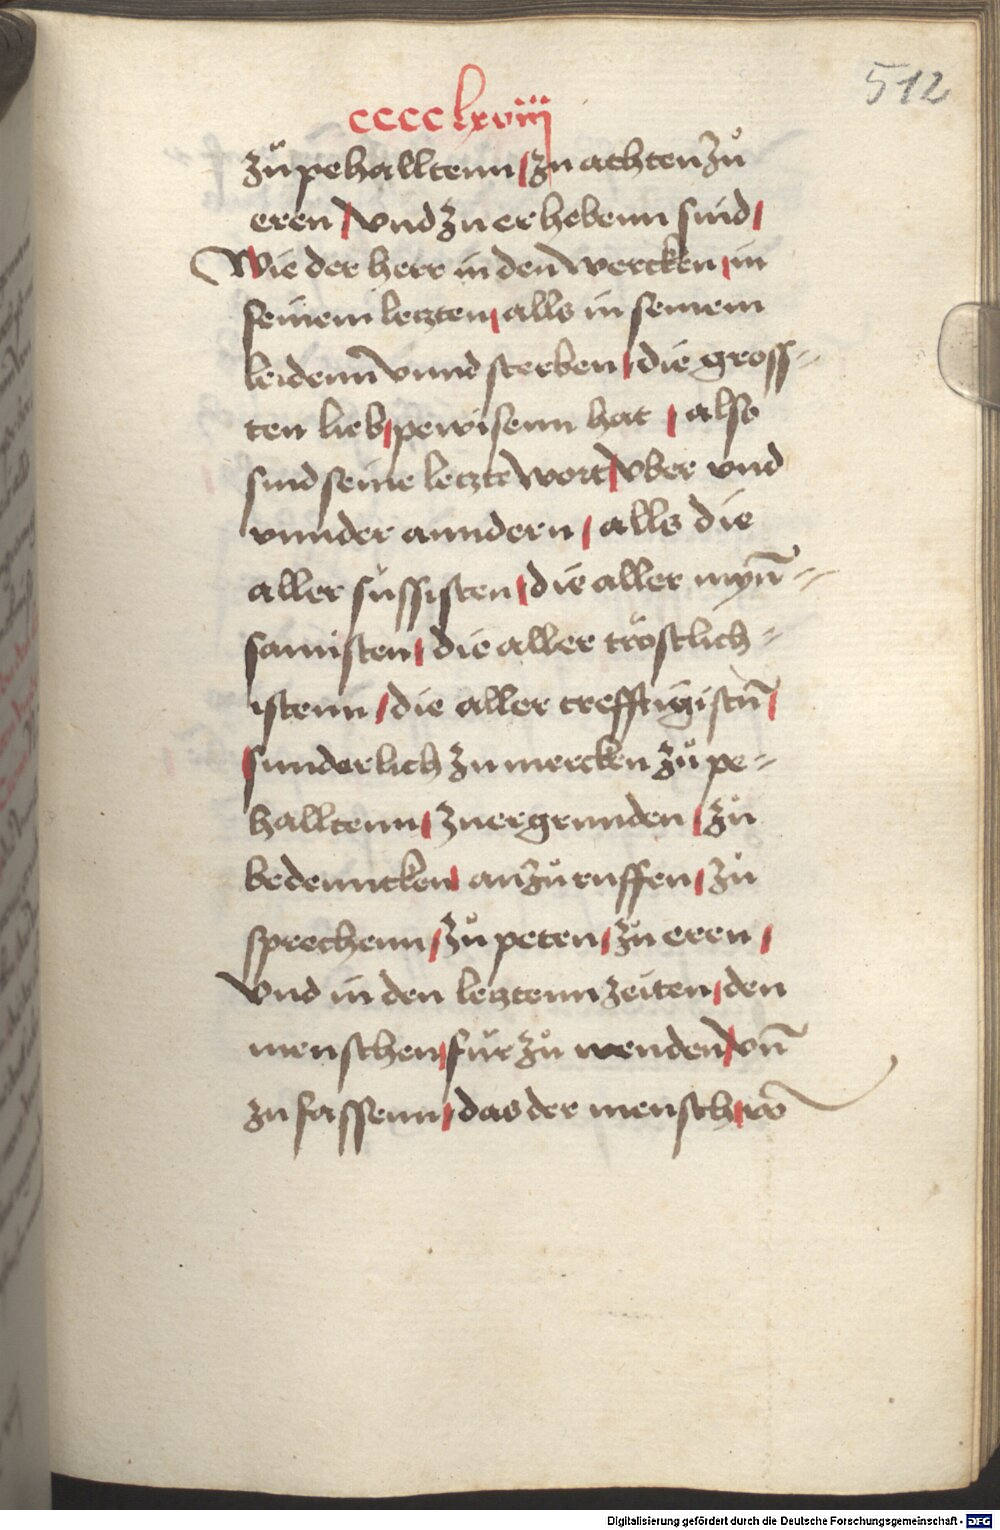 512
cccclxviij
zů pehalltenn / zu achten zů
eren / vnd zu erhebenn sind /
Wie der herr in den wercken / in
seinem letzten / alls in seinem
leidenn vnnd sterben / die gross=
ten lieb / pewisenn hat / also
sind seine letzte wort / vber vnd
vnnder anndern / alls die
aller süssisten / die aller myn̄=
samisten / die aller tröstlich=
istenn / die aller trefftigistn̄ /
sunderlich zu mercken zů pe=
halltenn / zu ergrunden / zů
bedenncken / an zů ruffen / zů
sprechenn / zů peten / zů eren /
vnd in den letztenn zeiten / den
menschen / für zů wenden / vn̄
zu fassenn / das der mensch /
Digitalisierung gefördert durch die Deutsche Forschungsgemeinschaft - DFG